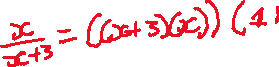 x/(x+3) = ((x+3)(x))(1)